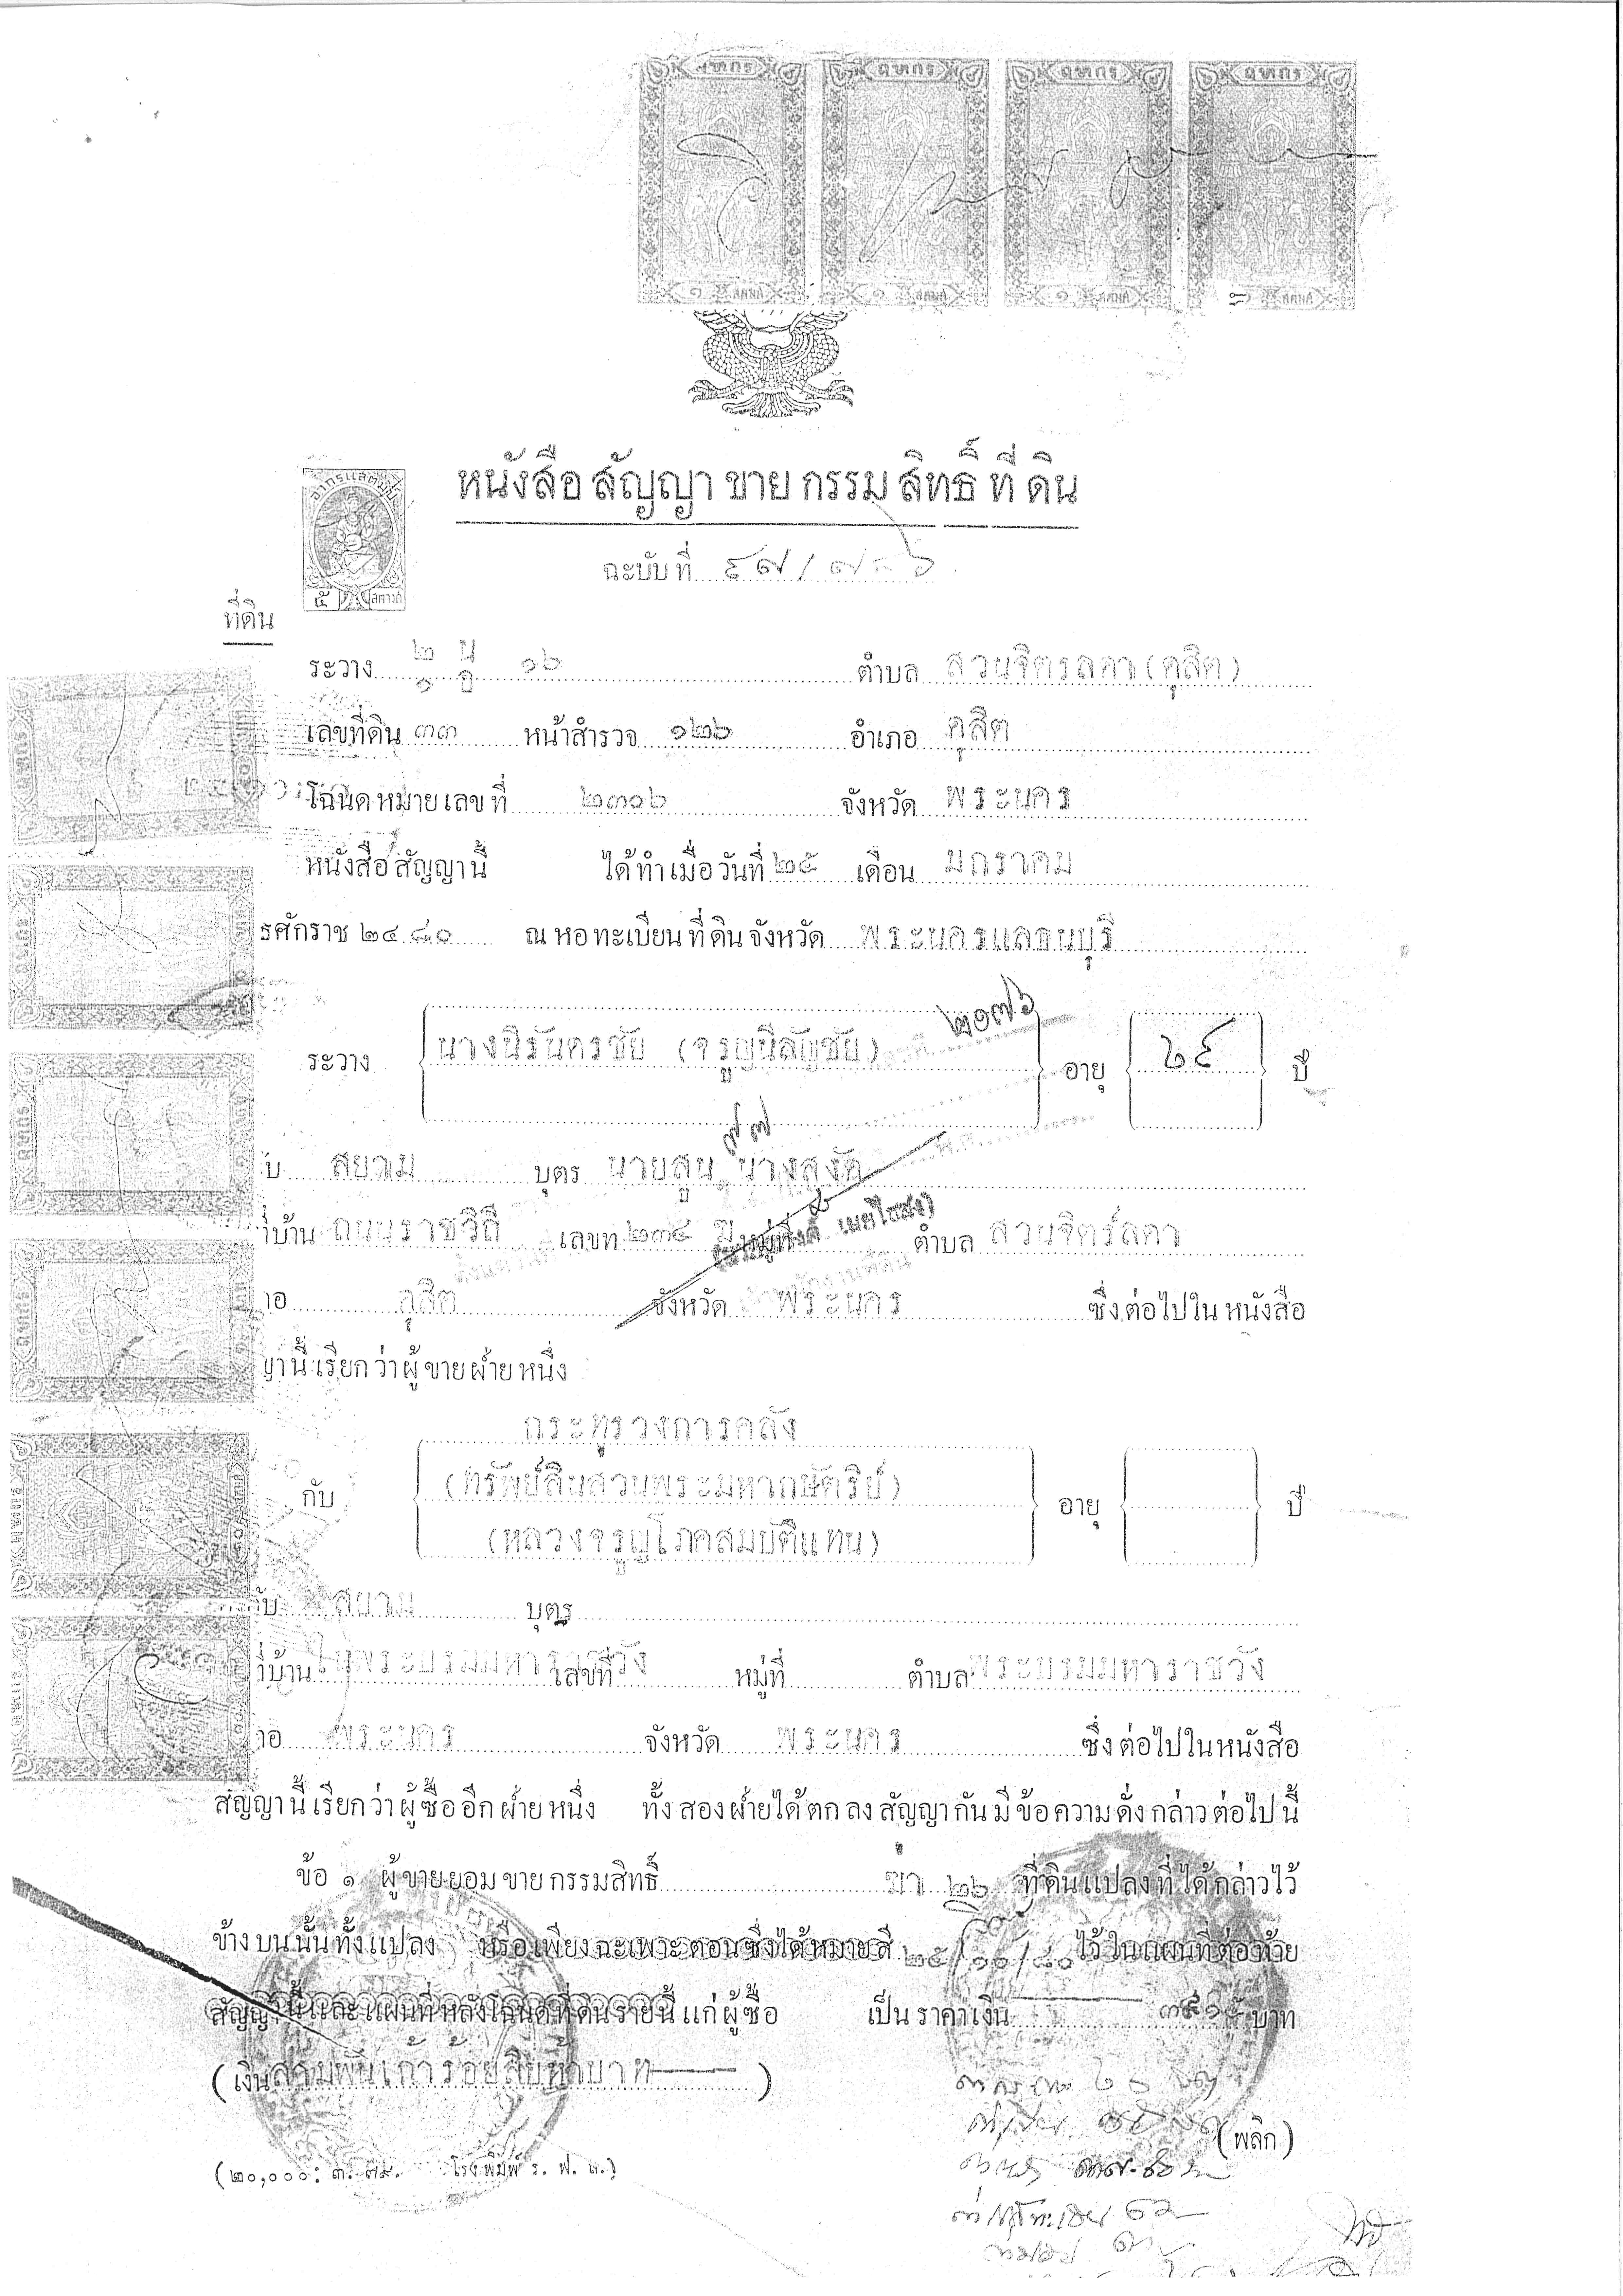 อากรแสตมป์
๕ สตางค์
หนังสือ สัญญา ขาย กรรม สิทธิ์ ที่ ดิน
ฉะบับ ที่
ที่ดิน
ระวาง ๒ น ๑๖ ตำบล สวนจิตรลดา (ดุสิต)
๑ อ
เลขที่ดิน ๓๓ หน้าสำรวจ ๑๒๖ อำเภอ ดุสิต
โฉนด หมาย เลข ที่ ๒๓๐๖ จังหวัด พระนคร
หนังสือ สัญญา นี้ ได้ ทำ เมื่อ วันที่ ๒๕ เดือน มกราคม
รศักราช ๒๔๘๐ ณ หอ ทะเบียน ที่ ดิน จังหวัด พระนครแลธนบุรี
๒๑๗๖
ระวาง นางนิรันดรชัย (จรูญนิลัญชัย) อายุ ปี
ับ สยาม บุตร นายสูน นางสงัด
ี่บ้าน ถนนราชวิถี เลขที่ ๒๓๔ หมู่ที่ ตำบล สวนจิตร์ลดา
ำอ ดุสิต จังหวัด พระนคร ซึ่ง ต่อไป ใน หนังสือ
ญา นี้ เรียก ว่า ผู้ ขาย ฝ่าย หนึ่ง
กระทรวงการคลัง
กับ (ทรัพย์สินส่วนพระมหากษัตริย์) อายุ ปี
(หลวงจรูญโภคสมบัติแทน)
ับ สยาม บุตร
ี่บ้าน ในพระบรมมหาราชวัง เลขที่ หมู่ที่ ตำบล พระบรมมหาราชวัง
ำอ พระนคร จังหวัด พระนคร ซึ่ง ต่อไป ใน หนังสือ
สัญญา นี้ เรียก ว่า ผู้ ซื้อ อีก ฝ่าย หนึ่ง ทั้ง สอง ฝ่าย ได้ ตก ลง สัญญา กัน มี ข้อ ความ ดั่ง กล่าว ต่อไป นี้
ข้อ ๑ ผู้ ขาย ยอม ขาย กรรมสิทธิ์ ที่ดิน แปลง ที่ ได้ กล่าว ไว้
ข้าง บน นั้น ทั้ง แปลง หรือ เพียง ฉะเพาะ ตอน ซึ่ง ได้ หมาย สี ไว้ ใน แผนที่ ต่อ ท้าย
สัญญา นี้ และ แผนที่ หลัง โฉนด ที่ ดิน ราย นี้ แก่ ผู้ ซื้อ เป็น ราคา เงิน ๓๙๑๕ บาท
(เงิน สามพันเก้าร้อยสิบห้าบาท)
(พลิก)
(๒๐,๐๐๐: ๓. ๗๙. โรงพิมพ์ ร. ฟ. ล.)